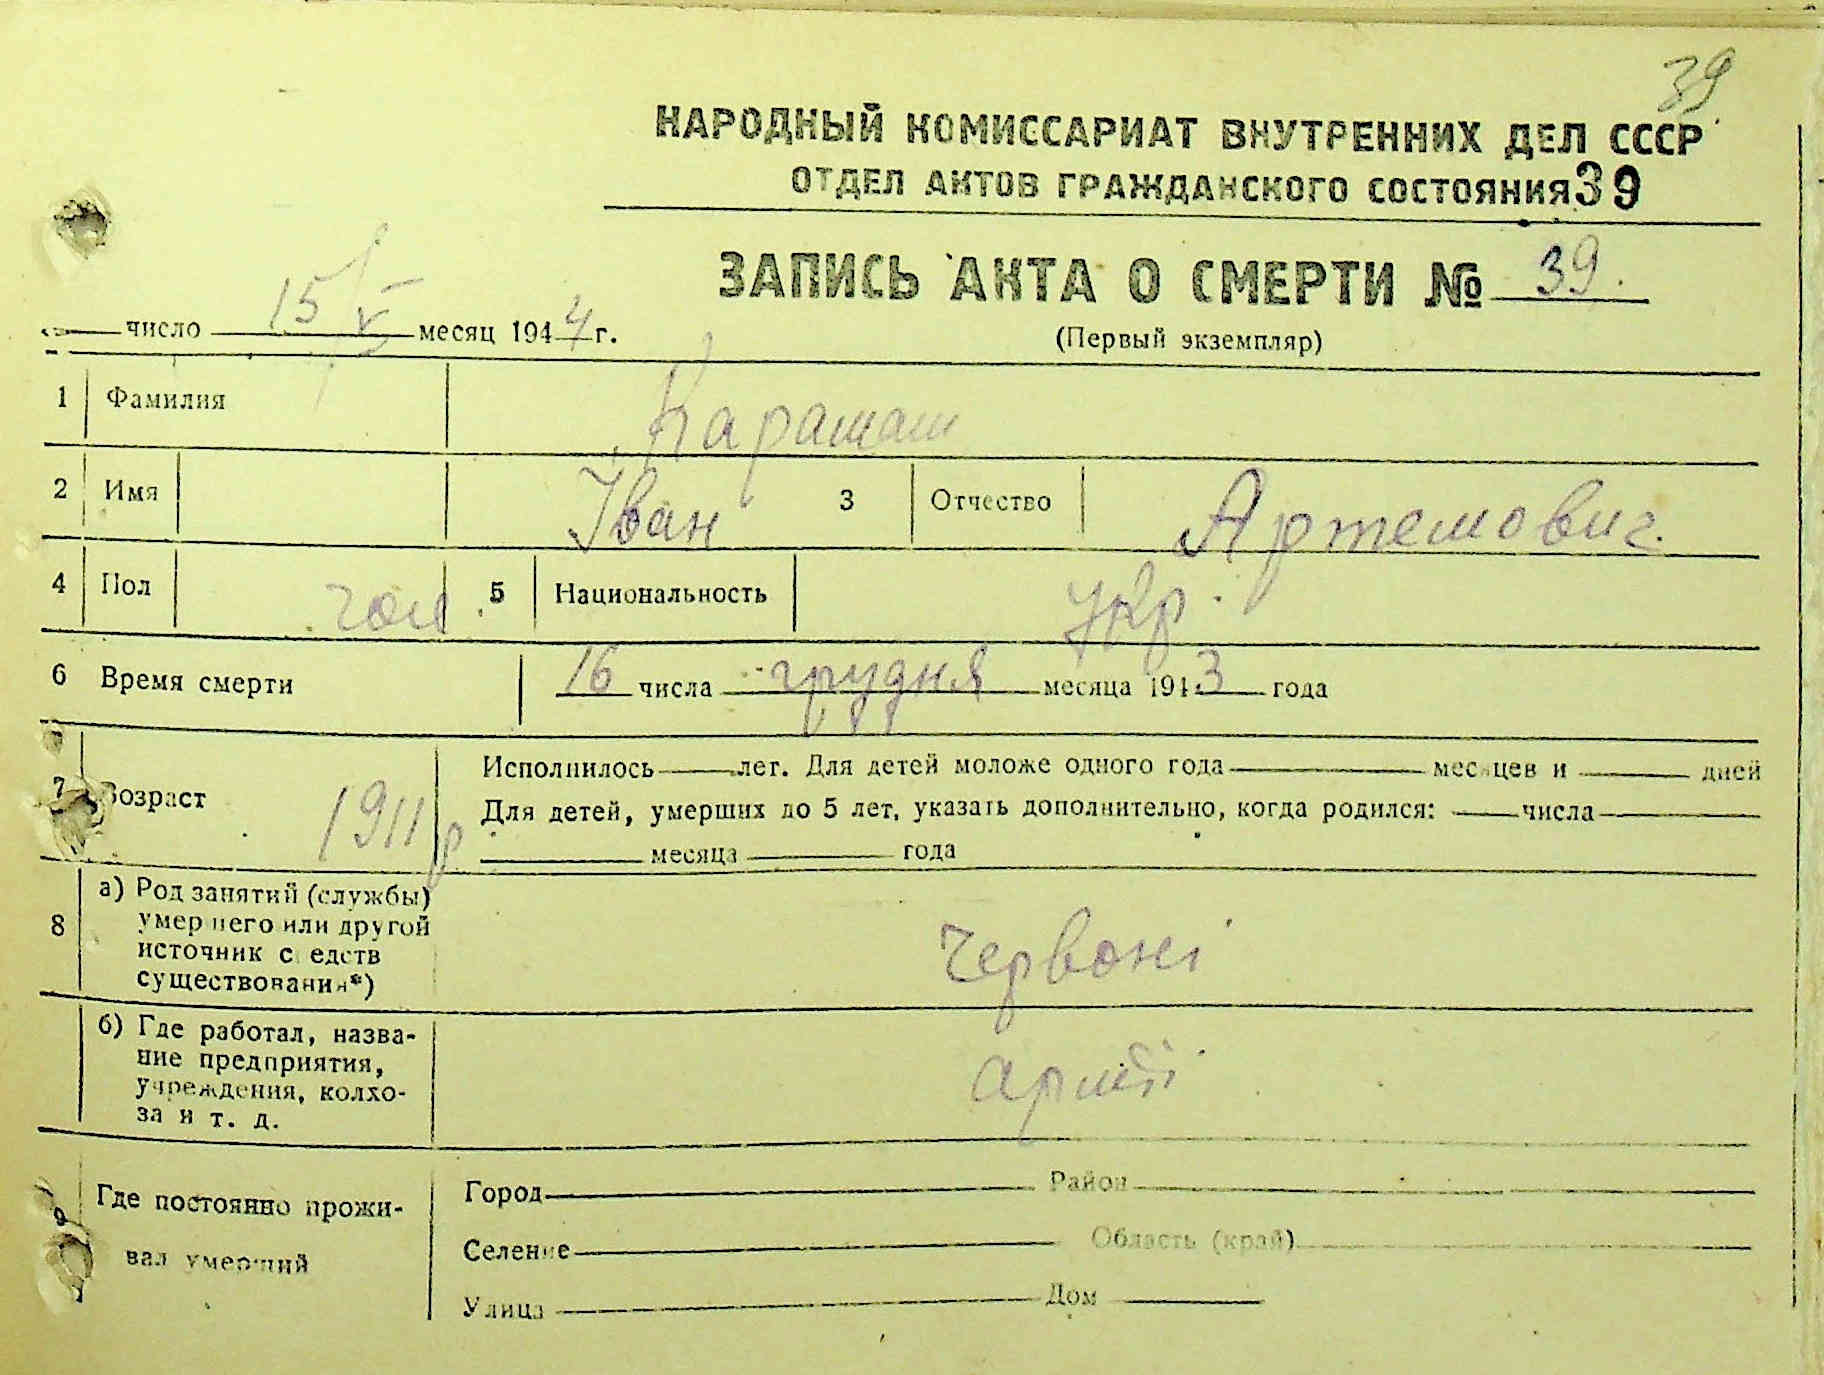 39
НАРОДНЫЙ КОМИССАРИАТ ВНУТРЕННИХ ДЕЛ СССР
ОТДЕЛ АКТОВ ГРАЖДАНСКОГО СОСТОЯНИЯ 39
ЗАПИСЬ АКТА О СМЕРТИ № 39.
число 15/V месяц 1944 г.
(Первый экземпляр)
1 Фамилия Карамаш
2 Имя Іван 3 Отчество Артемович.
4 Пол чол. 5 Национальность укр.
6 Время смерти 16 числа грудня месяца 1943 года
7 Возраст 1911 р Исполнилось лет. Для детей моложе одного года месяцев и дней
Для детей, умерших до 5 лет, указать дополнительно, когда родился: числа
месяца года
8 а) Род занятий (службы)
умершего или другой
источник средств
существования*)
Червоні
б) Где работал, назва-
ние предприятия,
учреждения, колхо-
за и т. д.
армії
9 Где постоянно прожи-
вал умерший
Город Район
Селение Область (край)
Улица Дом